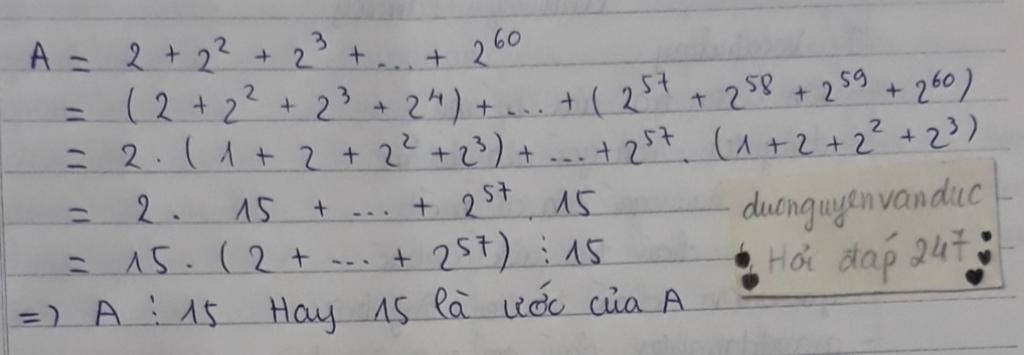 A = 2 + 2² + 2³ + ... + 2⁶⁰
= (2 + 2² + 2³ + 2⁴) + ... + (2⁵⁷ + 2⁵⁸ + 2⁵⁹ + 2⁶⁰)
= 2 . (1 + 2 + 2² + 2³) + ... + 2⁵⁷ . (1 + 2 + 2² + 2³)
= 2 . 15 + ... + 2⁵⁷ . 15
= 15 . (2 + ... + 2⁵⁷) ⋮ 15
=> A ⋮ 15 Hay 15 là ước của A
ducnguyenvanduc
Hỏi đáp 247